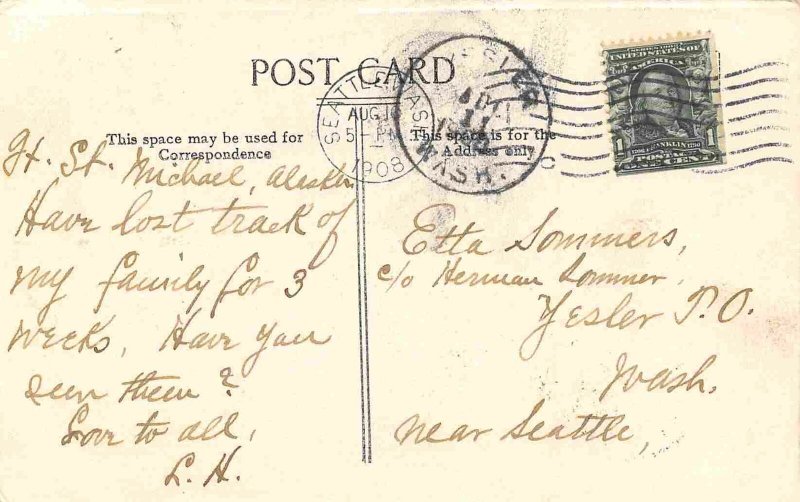 POST CARD
SEATTLE, WASH.
AUG 10
5 - PM
1908
YESLER
WASH.
SERIES 1902
UNITED STATES OF
AMERICA
1706 FRANKLIN 1790
1 POSTAGE 1
ONE CENT
This space may be used for
Correspondence
This space is for the
Address only
Ft. St. Michael, Alaska
Have lost track of
my family for 3
weeks, Have you
seen them?
Love to all,
L. H.
Etta Sommers,
c/o Herman Sommer,
Yesler P.O.
Wash.
near Seattle,